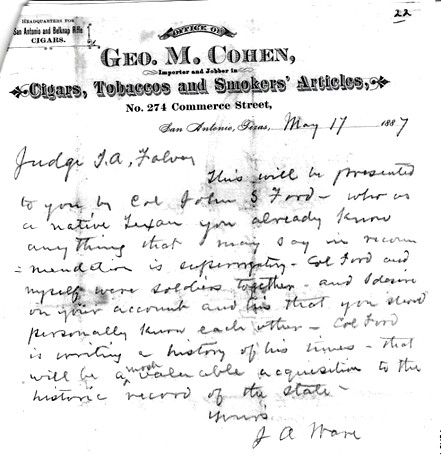 22
HEADQUARTERS FOR
San Antonio and Belknap Rifle
CIGARS.
OFFICE OF
GEO. M. COHEN,
Importer and Jobber in
Cigars, Tobaccos and Smokers' Articles,
No. 274 Commerce Street,
San Antonio, Texas, May 17 1887
Judge T. A. Falvey
This will be presented
to you by Col John S Ford - who as
a native Texan you already know
anything that I may say in recom
=mendation is superrogatory - Col Ford and
myself were soldiers together - and I desire
on your account and his that you should
personally know each other - Col Ford
is writing a history of his times - that
will be a most valuable acquisition to the
historic record of the state -
Yours
J A Ware